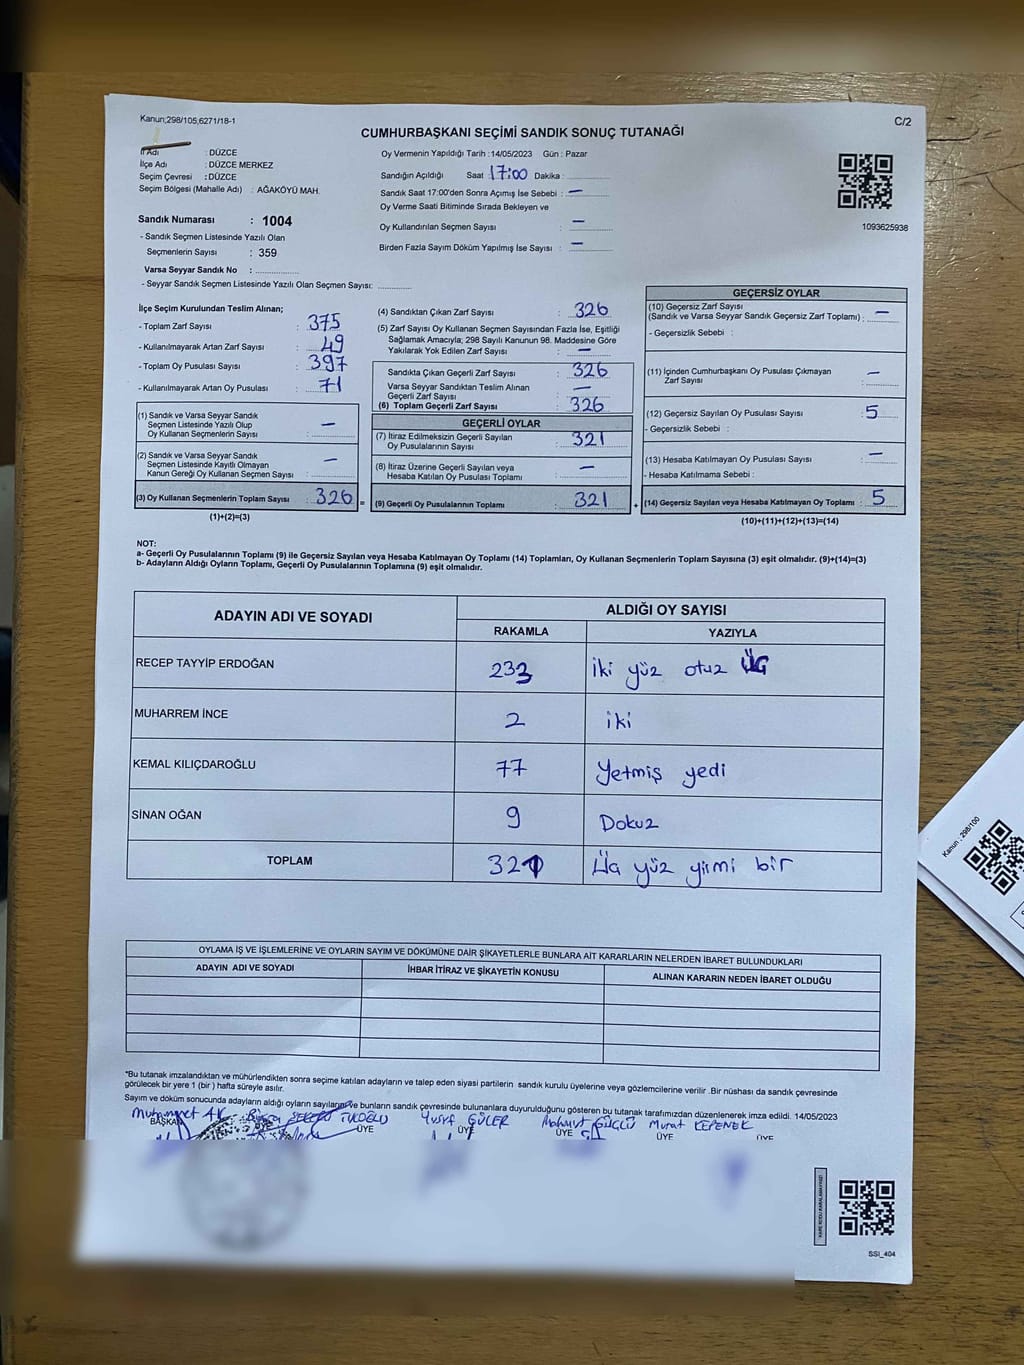 Kanun;298/105,6271/18-1
C/2
CUMHURBAŞKANI SEÇİMİ SANDIK SONUÇ TUTANAĞI
İl Adı : DÜZCE
İlçe Adı : DÜZCE MERKEZ
Seçim Çevresi : DÜZCE
Seçim Bölgesi (Mahalle Adı) : AĞAKÖYÜ MAH.
Sandık Numarası : 1004
- Sandık Seçmen Listesinde Yazılı Olan
Seçmenlerin Sayısı : 359
Varsa Seyyar Sandık No :
- Seyyar Sandık Seçmen Listesinde Yazılı Olan Seçmen Sayısı:
Oy Vermenin Yapıldığı Tarih :14/05/2023 Gün : Pazar
Sandığın Açıldığı Saat : 17:00 Dakika :
Sandık Saat 17:00'den Sonra Açımış İse Sebebi : —
Oy Verme Saati Bitiminde Sırada Bekleyen ve
Oy Kullandırılan Seçmen Sayısı : —
Birden Fazla Sayım Döküm Yapılmış İse Sayısı : —
1093625938
İlçe Seçim Kurulundan Teslim Alınan;
- Toplam Zarf Sayısı : 375
- Kullanılmayarak Artan Zarf Sayısı : 49
- Toplam Oy Pusulası Sayısı : 397
- Kullanılmayarak Artan Oy Pusulası : 71
(1) Sandık ve Varsa Seyyar Sandık
Seçmen Listesinde Yazılı Olup
Oy Kullanan Seçmenlerin Sayısı : —
(2) Sandık ve Varsa Seyyar Sandık
Seçmen Listesinde Kayıtlı Olmayan
Kanun Gereği Oy Kullanan Seçmen Sayısı : —
(3) Oy Kullanan Seçmenlerin Toplam Sayısı : 326
(1)+(2)=(3)
=
(4) Sandıktan Çıkan Zarf Sayısı : 326
(5) Zarf Sayısı Oy Kullanan Seçmen Sayısından Fazla İse, Eşitliği
Sağlamak Amacıyla; 298 Sayılı Kanunun 98. Maddesine Göre
Yakılarak Yok Edilen Zarf Sayısı : —
Sandıkta Çıkan Geçerli Zarf Sayısı : 326
Varsa Seyyar Sandıktan Teslim Alınan
Geçerli Zarf Sayısı : —
(6) Toplam Geçerli Zarf Sayısı : 326
GEÇERLİ OYLAR
(7) İtiraz Edilmeksizin Geçerli Sayılan
Oy Pusulalarının Sayısı : 321
(8) İtiraz Üzerine Geçerli Sayılan veya
Hesaba Katılan Oy Pusulası Toplamı : —
(9) Geçerli Oy Pusulalarının Toplamı : 321
+
GEÇERSİZ OYLAR
(10) Geçersiz Zarf Sayısı
(Sandık ve Varsa Seyyar Sandık Geçersiz Zarf Toplamı) : —
- Geçersizlik Sebebi :
(11) İçinden Cumhurbaşkanı Oy Pusulası Çıkmayan
Zarf Sayısı : —
(12) Geçersiz Sayılan Oy Pusulası Sayısı : 5
- Geçersizlik Sebebi :
(13) Hesaba Katılmayan Oy Pusulası Sayısı : —
- Hesaba Katılmama Sebebi :
(14) Geçersiz Sayılan veya Hesaba Katılmayan Oy Toplamı : 5
(10)+(11)+(12)+(13)=(14)
NOT:
a- Geçerli Oy Pusulalarının Toplamı (9) ile Geçersiz Sayılan veya Hesaba Katılmayan Oy Toplamı (14) Toplamları, Oy Kullanan Seçmenlerin Toplam Sayısına (3) eşit olmalıdır. (9)+(14)=(3)
b- Adayların Aldığı Oyların Toplamı, Geçerli Oy Pusulalarının Toplamına (9) eşit olmalıdır.
ADAYIN ADI VE SOYADI ALDIĞI OY SAYISI
RAKAMLA YAZIYLA
RECEP TAYYİP ERDOĞAN 233 iki yüz otuz üç
MUHARREM İNCE 2 iki
KEMAL KILIÇDAROĞLU 77 Yetmiş yedi
SİNAN OĞAN 9 Dokuz
TOPLAM 321 Üç yüz yirmi bir
OYLAMA İŞ VE İŞLEMLERİNE VE OYLARIN SAYIM VE DÖKÜMÜNE DAİR ŞİKAYETLERLE BUNLARA AİT KARARLARIN NELERDEN İBARET BULUNDUKLARI
ADAYIN ADI VE SOYADI İHBAR İTİRAZ VE ŞİKAYETİN KONUSU ALINAN KARARIN NEDEN İBARET OLDUĞU
*Bu tutanak imzalandıktan ve mühürlendikten sonra seçime katılan adayların ve talep eden siyasi partilerin sandık kurulu üyelerine veya gözlemcilerine verilir .Bir nüshası da sandık çevresinde
görülecek bir yere 1 (bir ) hafta süreyle asılır.
Sayım ve döküm sonucunda adayların aldığı oyların sayılarını ve bunların sandık çevresinde bulunanlara duyurulduğunu gösteren bu tutanak tarafımızdan düzenlenerek imza edildi. 14/05/2023
Muhammet AK Yusuf GÜLER Mahmut GÜÇLÜ Murat KEPENEK
BAŞKAN ÜYE ÜYE ÜYE ÜYE ÜYE
SSI_404
Kanun : 298/100